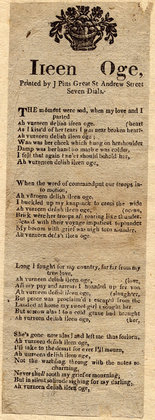 Ileen Oge,
Printed by J Pitts Great St Andrew Street
Seven Dials.
THE moment were sad, when my love and I
parted
Ah vurneen delish ileen oge,
As I kiss'd of her tears I was near broken heart
Ah vurneen delish ileen oge,
Wan was her cheek which hung on her shoulder
Damp was her hand no marble was colder,
I felt that again I ne'er should behold her,
Ah vurneen delish ileen oge,
When the word of command put our troops in-
to motion,
Ah vurneen delish ileen oge,
I buckled up my knapsack to cross the wide
Ah vurneen delish ileen oge,
Brisk were her troops all roaring like thunder,
Pleas'd with their voyage impatient
My bosom with grief was nigh torn asunder,
Ah vurneen delish ileen oge,
Long I fought for my country, far far from my
true love,
Ah vurneen delish ileen oge,
All my pay and arrears I hoarded up for you
Ah vurneen delish ileen oge,
But peace was proclaim'd I escaped from the
Landed at home my sweet girl I sought her
But sorrow alas to a cold grave had brought
Ah vurneen delish ileen oge, (her,
She's gone now alas and left me thus forlorn,
Ah vurneen delish ileen oge,
I'll take to the desart for ever I'll mourn,
Ah vurneen delish ileen oge,
Not the warbling throng with the notes so
charming,
Never shall sooth my grief or mourning,
But in silent solitude sighing for my darling,
Ah vurneen delish ileen oge,